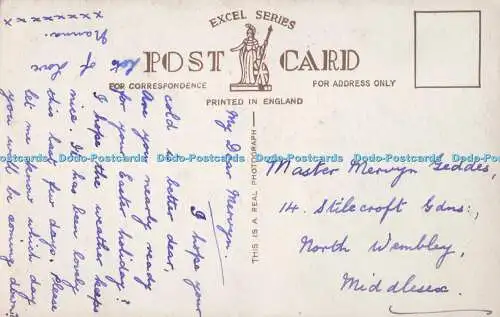 EXCEL SERIES
POST CARD
FOR CORRESPONDENCE
FOR ADDRESS ONLY
PRINTED IN ENGLAND
THIS IS A REAL PHOTOGRAPH
My Dear Mervyn.
I hope your
cold is better dear,
Are you nearly ready
for your Easter holiday?
I hope the weather keeps
nice. It has been lovely
this last few days. Please
let me know which day
you will be coming down.
Lots of love
Nanna.
x x x x x x x x
Master Mervyn Geddes,
14. Stilecroft Gdns.,
North Wembley,
Middlesex.
Dodo-Postcards Dodo-Postcards Dodo-Postcards Dodo-Postcards Dodo-Postcards